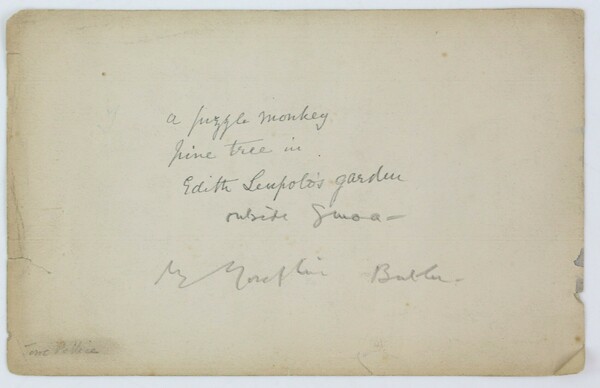 a puzzle monkey
pine tree in
Edith Leupold's garden
outside Genoa —
By Josephine Butler.
Torre Pellice